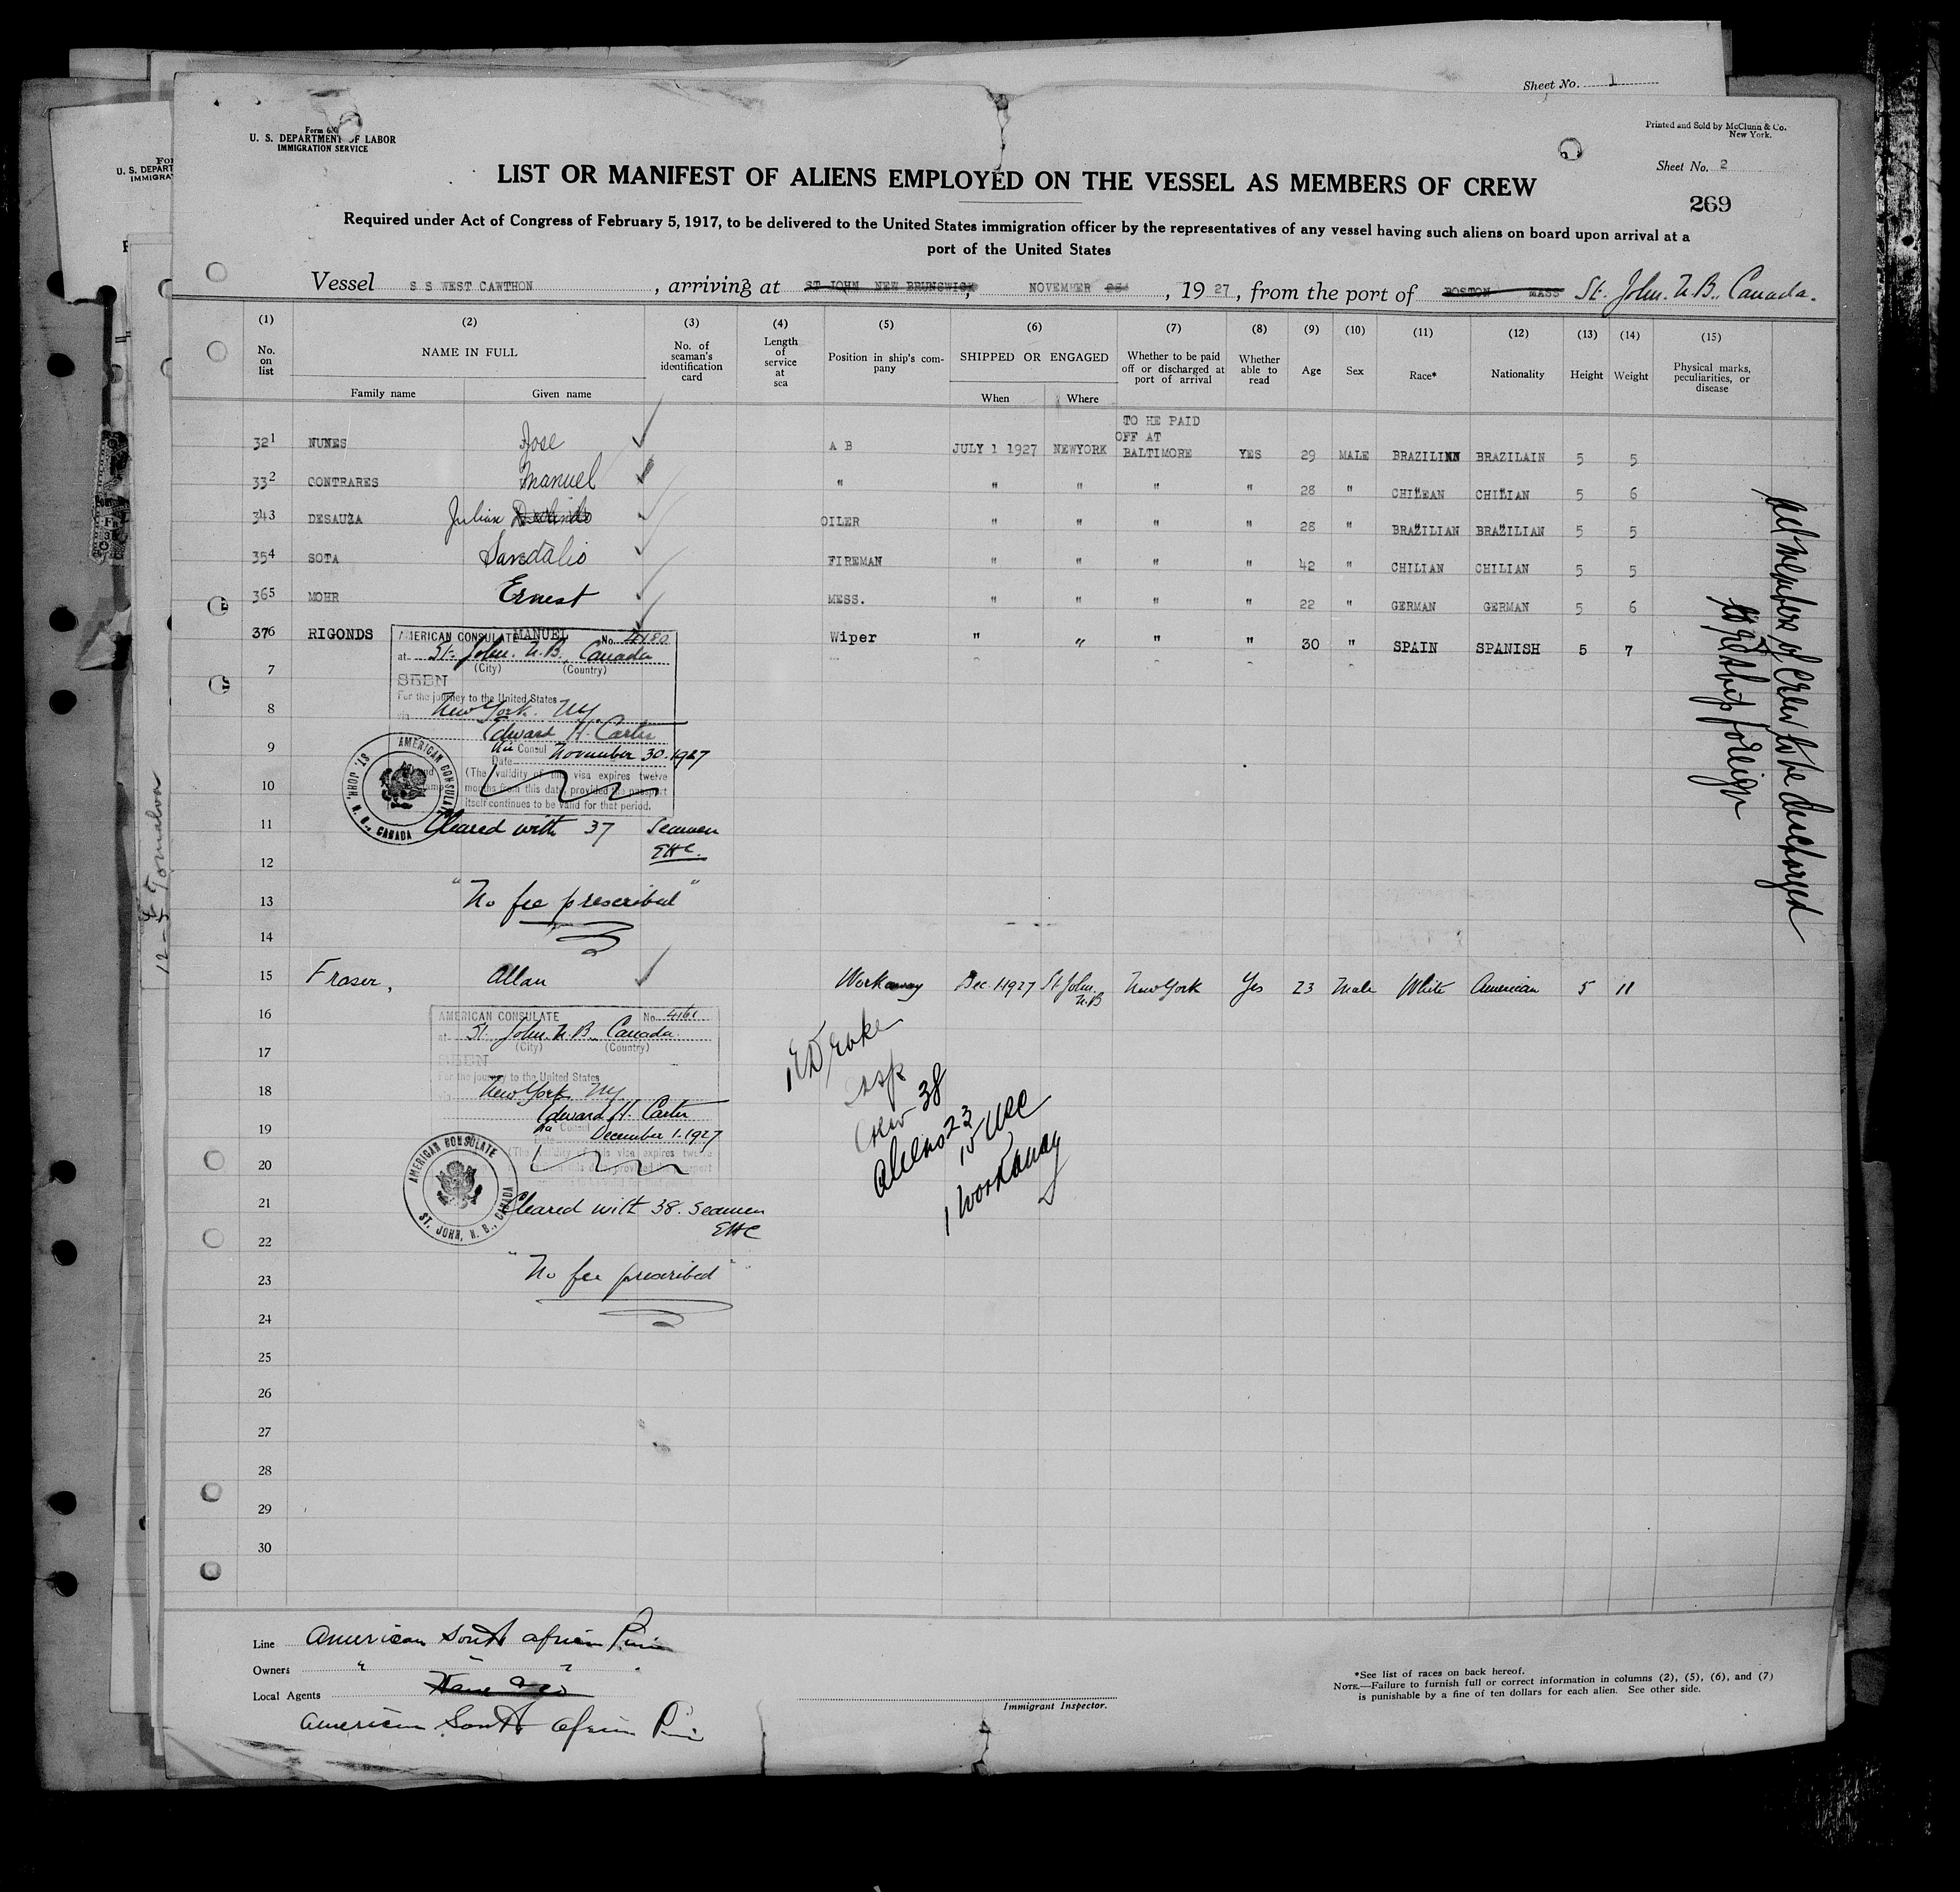 Sheet No. 1
Form 6
U. S. DEPARTMENT OF LABOR
IMMIGRATION SERVICE
Printed and Sold by McClunn & Co.
New York.
Sheet No. 2
269
LIST OR MANIFEST OF ALIENS EMPLOYED ON THE VESSEL AS MEMBERS OF CREW
Required under Act of Congress of February 5, 1917, to be delivered to the United States immigration officer by the representatives of any vessel having such aliens on board upon arrival at a
port of the United States
Vessel S S WEST CAWTHON, arriving at ST JOHN NEW BRUNSWICK, NOVEMBER, 1927, from the port of BOSTON MASS St. John. N.B., Canada.
(1) (2) (3) (4) (5) (6) (7) (8) (9) (10) (11) (12) (13) (14) (15)
No. on list NAME IN FULL No. of seaman's identification card Length of service at sea Position in ship's company SHIPPED OR ENGAGED Whether to be paid off or discharged at port of arrival Whether able to read Age Sex Race* Nationality Height Weight Physical marks, peculiarities, or disease
Family name Given name When Where
TO HE PAID
OFF AT
321 NUNES Jose A B JULY 1 1927 NEWYORK BALTIMORE YES 29 MALE BRAZILINN BRAZILAIN 5 5
332 CONTRARES Manuel " " " " " 28 " CHILEAN CHILIAN 5 6
343 DESAUZA Julian OILER " " " " 28 " BRAZILIAN BRAZILIAN 5 5
354 SOTA Sandalio FIREMAN " " " " 42 " CHILIAN CHILIAN 5 5
365 MOHR Ernest MESS. " " " " 22 " GERMAN GERMAN 5 6
376 RIGONDS MANUEL Wiper " " " " 30 " SPAIN SPANISH 5 7
AMERICAN CONSULATE No. 4180
at St. John. N.B. Canada
(City) (Country)
SEEN
For the journey to the United States
via New York. NY.
Edward H. Carter
Vice Consul
Date November 30. 1927
(The validity of this visa expires twelve
months from this date, provided the passport
itself continues to be valid for that period.
AMERICAN CONSULATE
ST. JOHN, N. B., CANADA
Cleared with 37 Seamen
EHC.
"No fee prescribed"
7
8
9
10
11
12
13
14
15 Fraser, Allan Workaway Dec. 1 1927 St John. N.B New York Yes 23 Male White American 5 11
AMERICAN CONSULATE No.
at St. John. N.B., Canada.
(City) (Country)
SEEN
For the journey to the United States
New York NY.
Edward H. Carter
Consul
Date December 1. 1927
AMERICAN CONSULATE
ST. JOHN, N. B., CANADA
Cleared with 38. Seamen
EHC
"No fee prescribed"
Crew 38
Aliens 23
15 USC
1 Workaway
16
17
18
19
20
21
22
23
24
25
26
27
28
29
30
All members of Crew to be discharged
foreign
Line American South African Line
Owners " " "
Local Agents
American South African Line
Immigrant Inspector.
*See list of races on back hereof.
NOTE.—Failure to furnish full or correct information in columns (2), (5), (6), and (7)
is punishable by a fine of ten dollars for each alien. See other side.